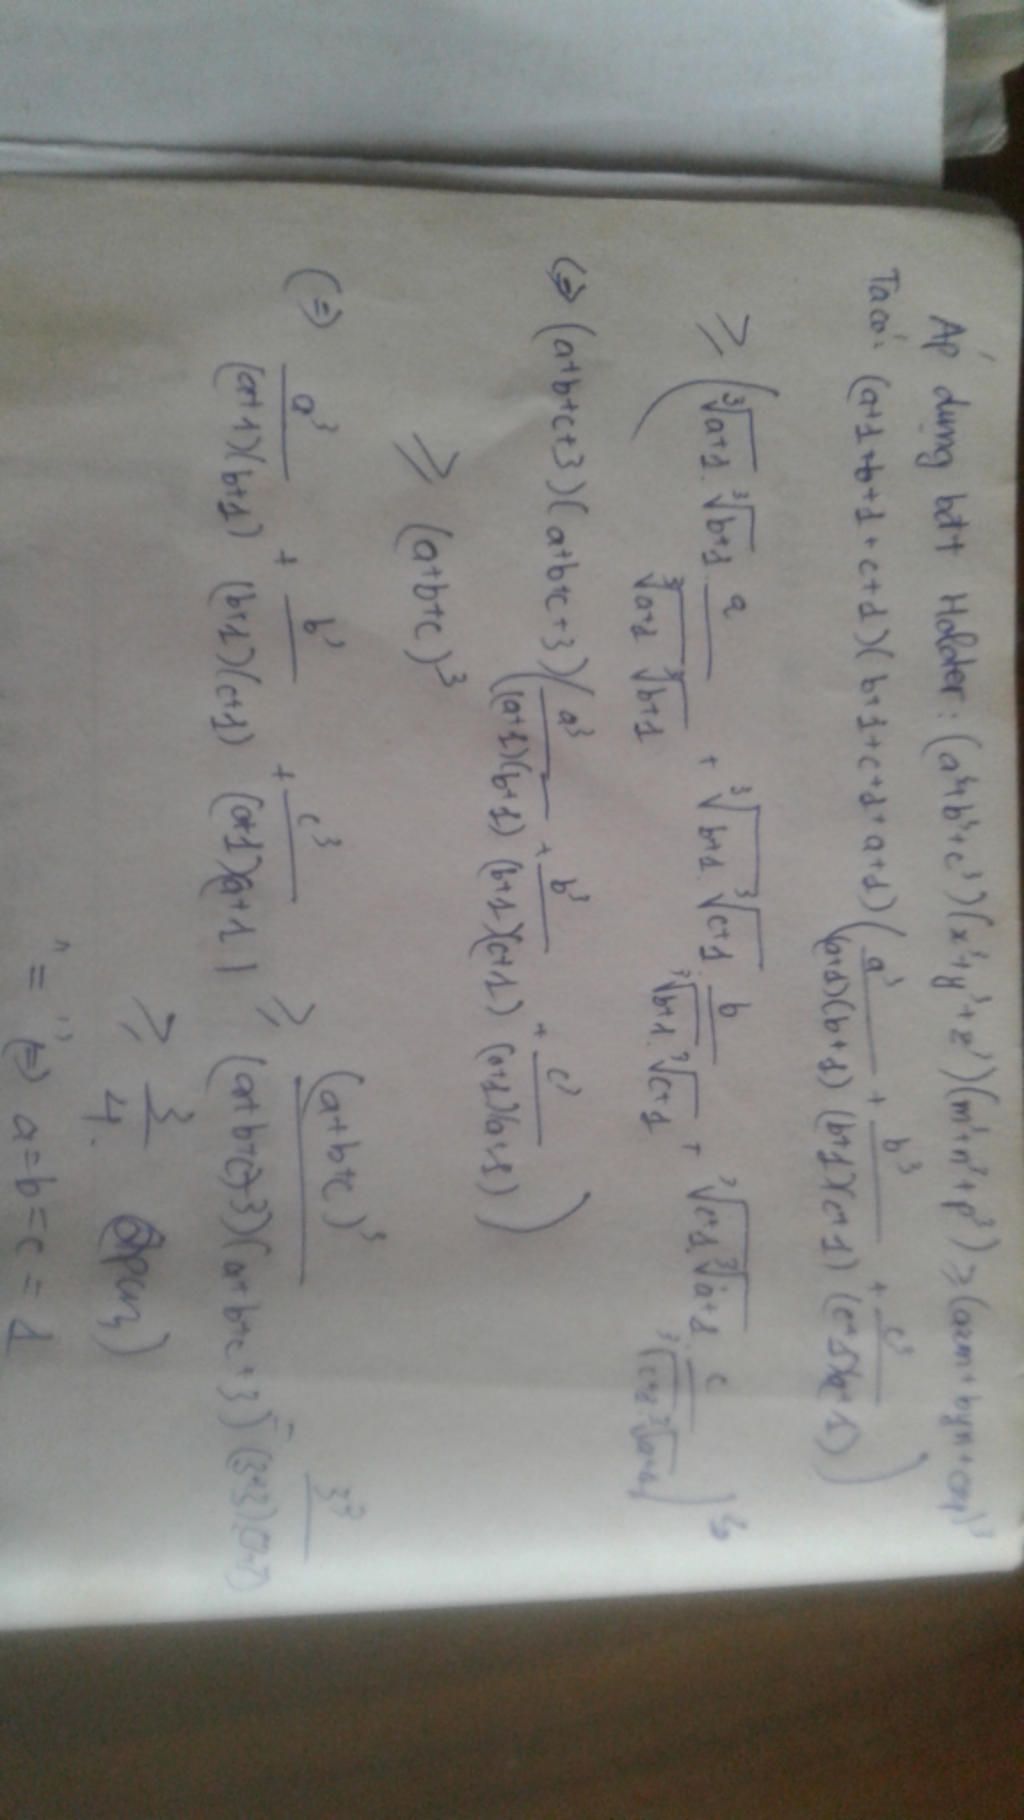 Áp dụng bđt Holder: (a³+b³+c³)(x³+y³+z³)(m³+n³+p³) ≥ (axm+byn+czp)³
Ta có: (a+1+b+1+c+1)(b+1+c+1+a+1)(a³/(a+1)(b+1) + b³/(b+1)(c+1) + c³/(c+1)(a+1))
≥ (∛a+1.∛b+1.a/∛a+1.∛b+1 + ∛b+1.∛c+1.b/∛b+1.∛c+1 + ∛c+1.∛a+1.c/∛c+1.∛a+1)³
(=) (a+b+c+3)(a+b+c+3)(a³/(a+1)(b+1) + b³/(b+1)(c+1) + c³/(c+1)(a+1))
≥ (a+b+c)³
(=) a³/(a+1)(b+1) + b³/(b+1)(c+1) + c³/(c+1)(a+1) ≥ (a+b+c)³/(a+b+c+3)(a+b+c+3) = 3³/(3+3)(3+3)
≥ 3/4. (đpcm)
"=" (=) a=b=c=1